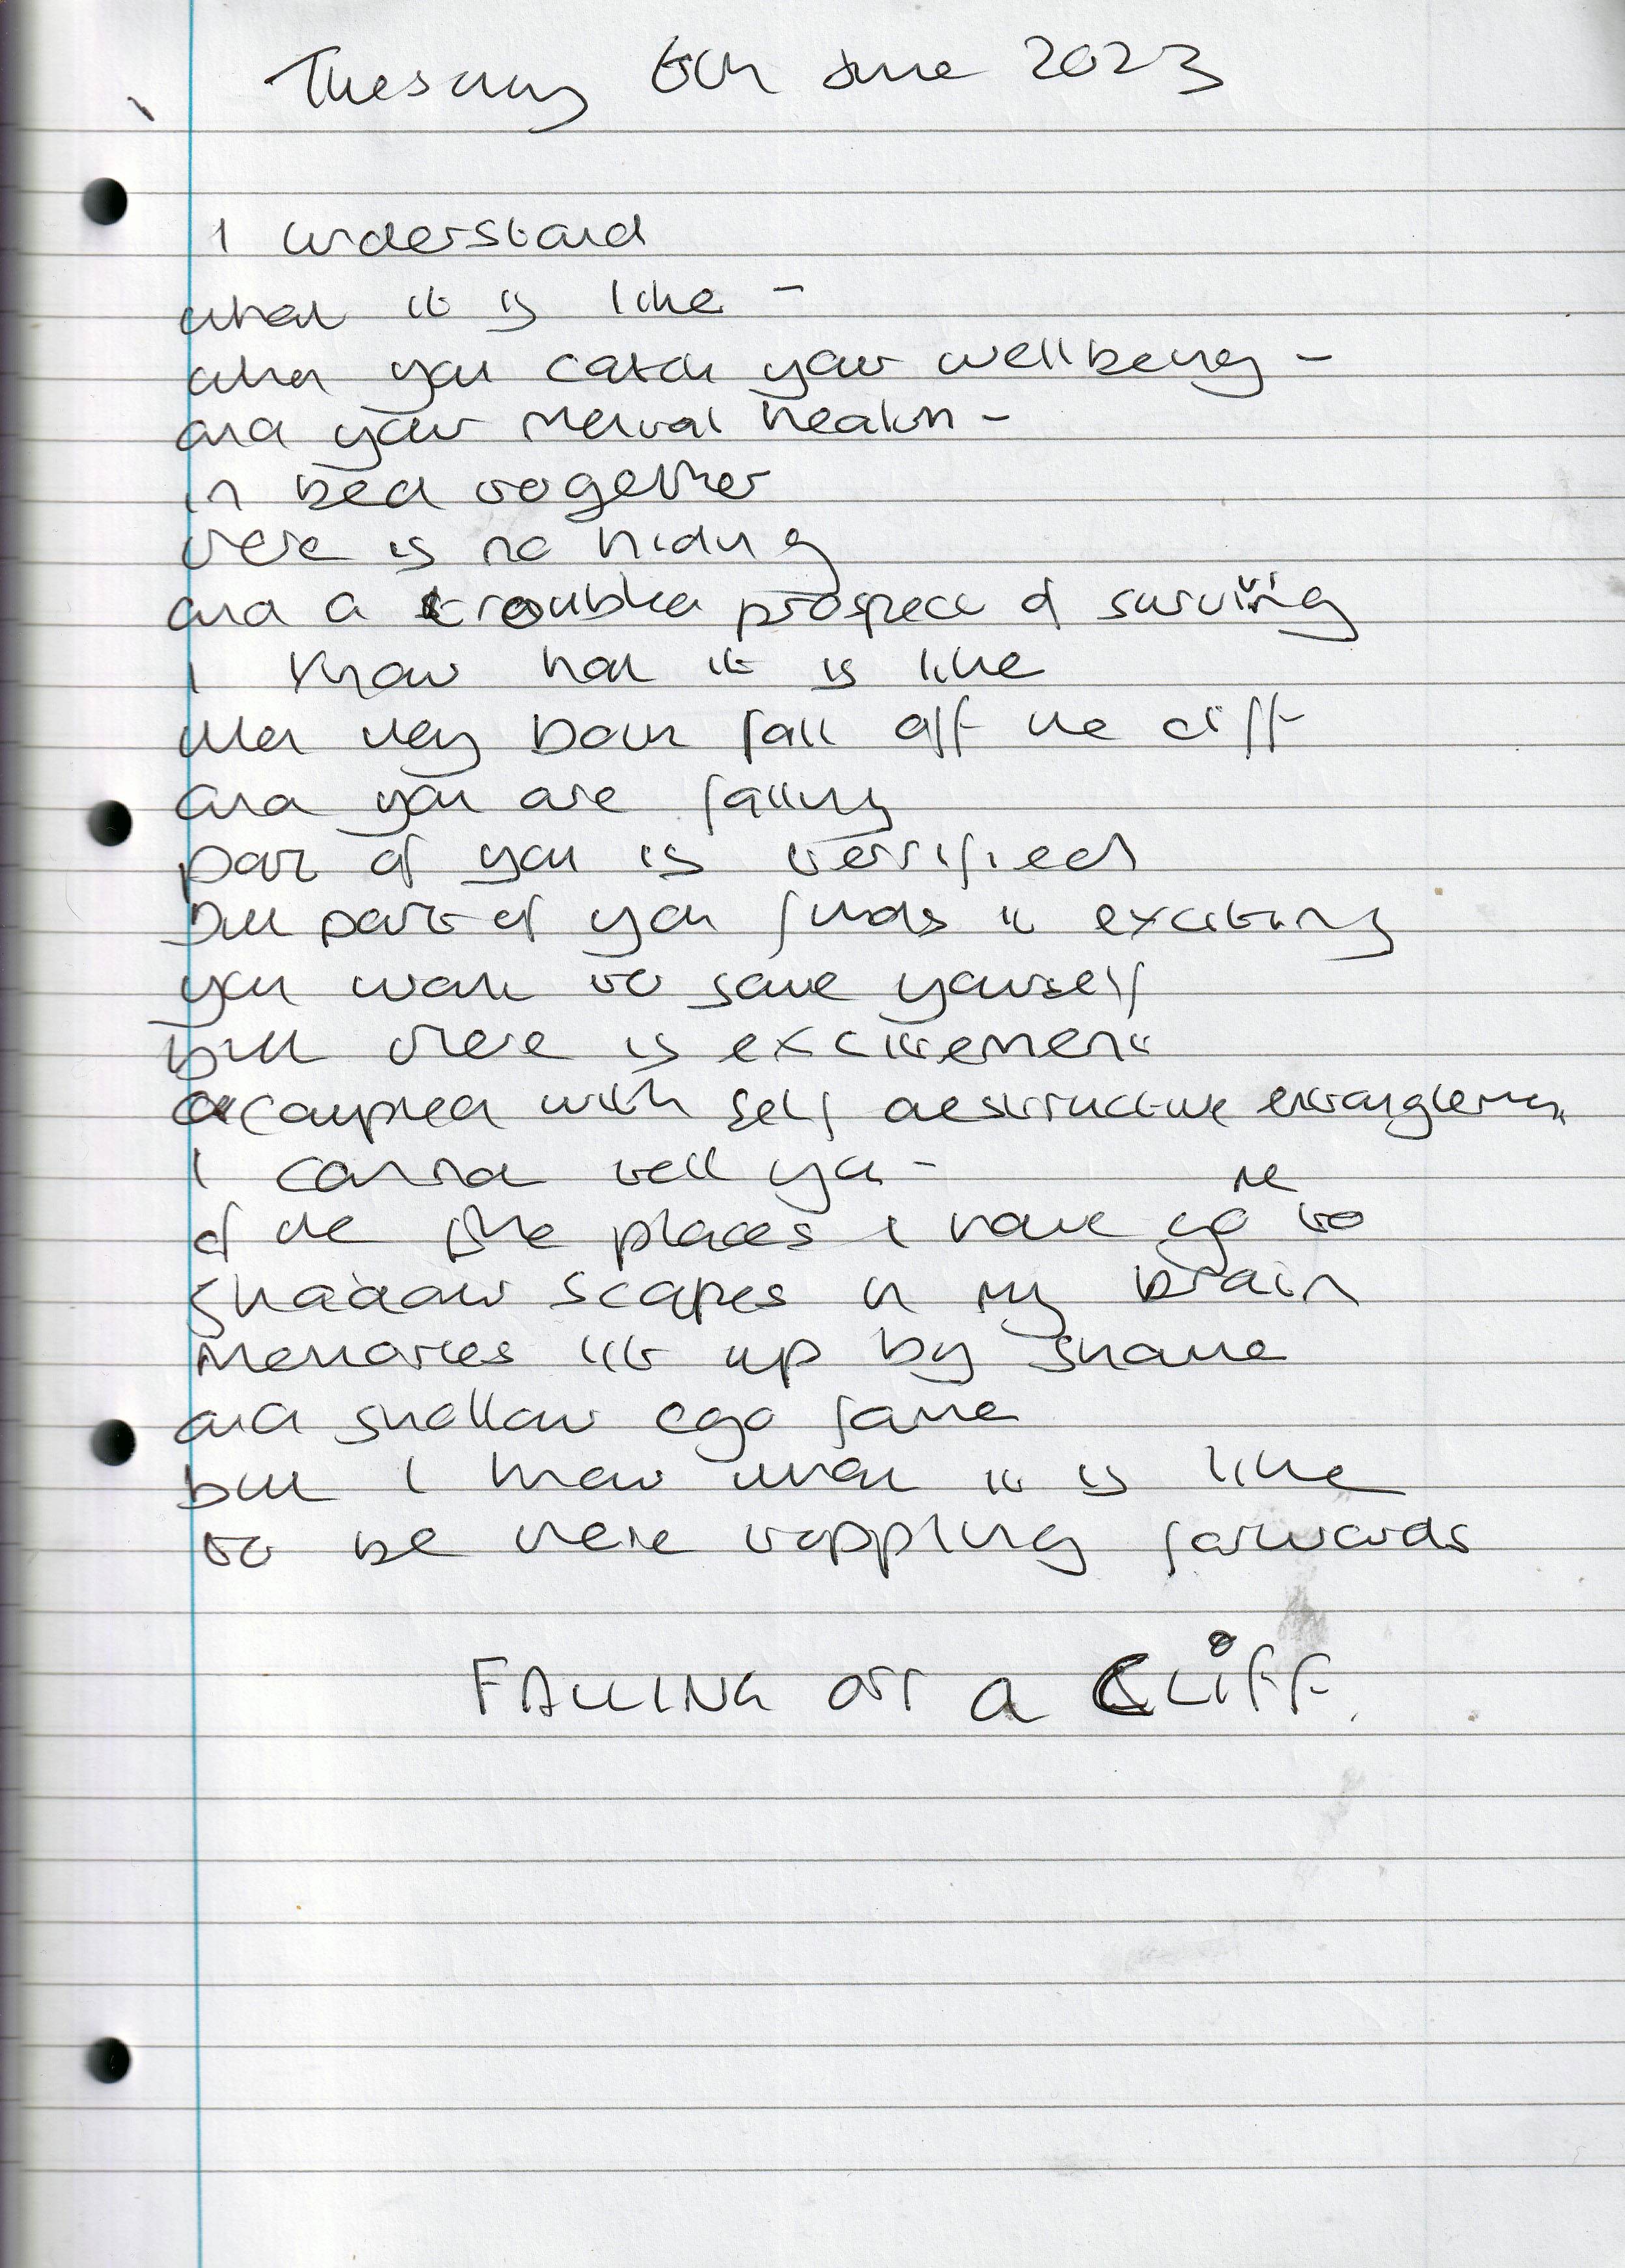 Tuesday 6th June 2023
I understand
what it is like -
when you catch your wellbeing -
and your mental health -
in bed together
there is no hiding
and a troubled prospect of surviving
I know how it is like
when they both fall off the cliff
and you are falling
part of you is terrified
but part of you finds it exciting
you want to save yourself
but there is excitement
coupled with self destructive entanglement
I cannot tell you -
of the the places I have go to
me
shadow scapes in my brain
memories lit up by shame
and shallow ego fame
but I know what it is like
to be there toppling forwards
FALLING OFF A CLIFF.